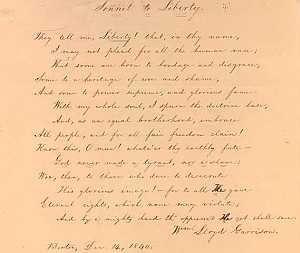 Sonnet to Liberty.
They tell me, Liberty! that, in thy name,
I may not plead for all the human race;
That some are born to bondage and disgrace,
Some to a heritage of woe and shame,
And some to power supreme, and glorious fame.
With my whole soul, I spurn the doctrine base,
And, as an equal brotherhood, embrace
All people, and for all fair freedom claim!
Know this, O man! whate'er thy earthly fate—
God never made a tyrant, nor a slave:
Woe, then, to those who dare to desecrate
His glorious image!—for to all He gave
Eternal rights, which none may violate;
And by a mighty hand th' oppressed He yet shall save.
Wm. Lloyd Garrison.
Boston, Dec. 14, 1840.